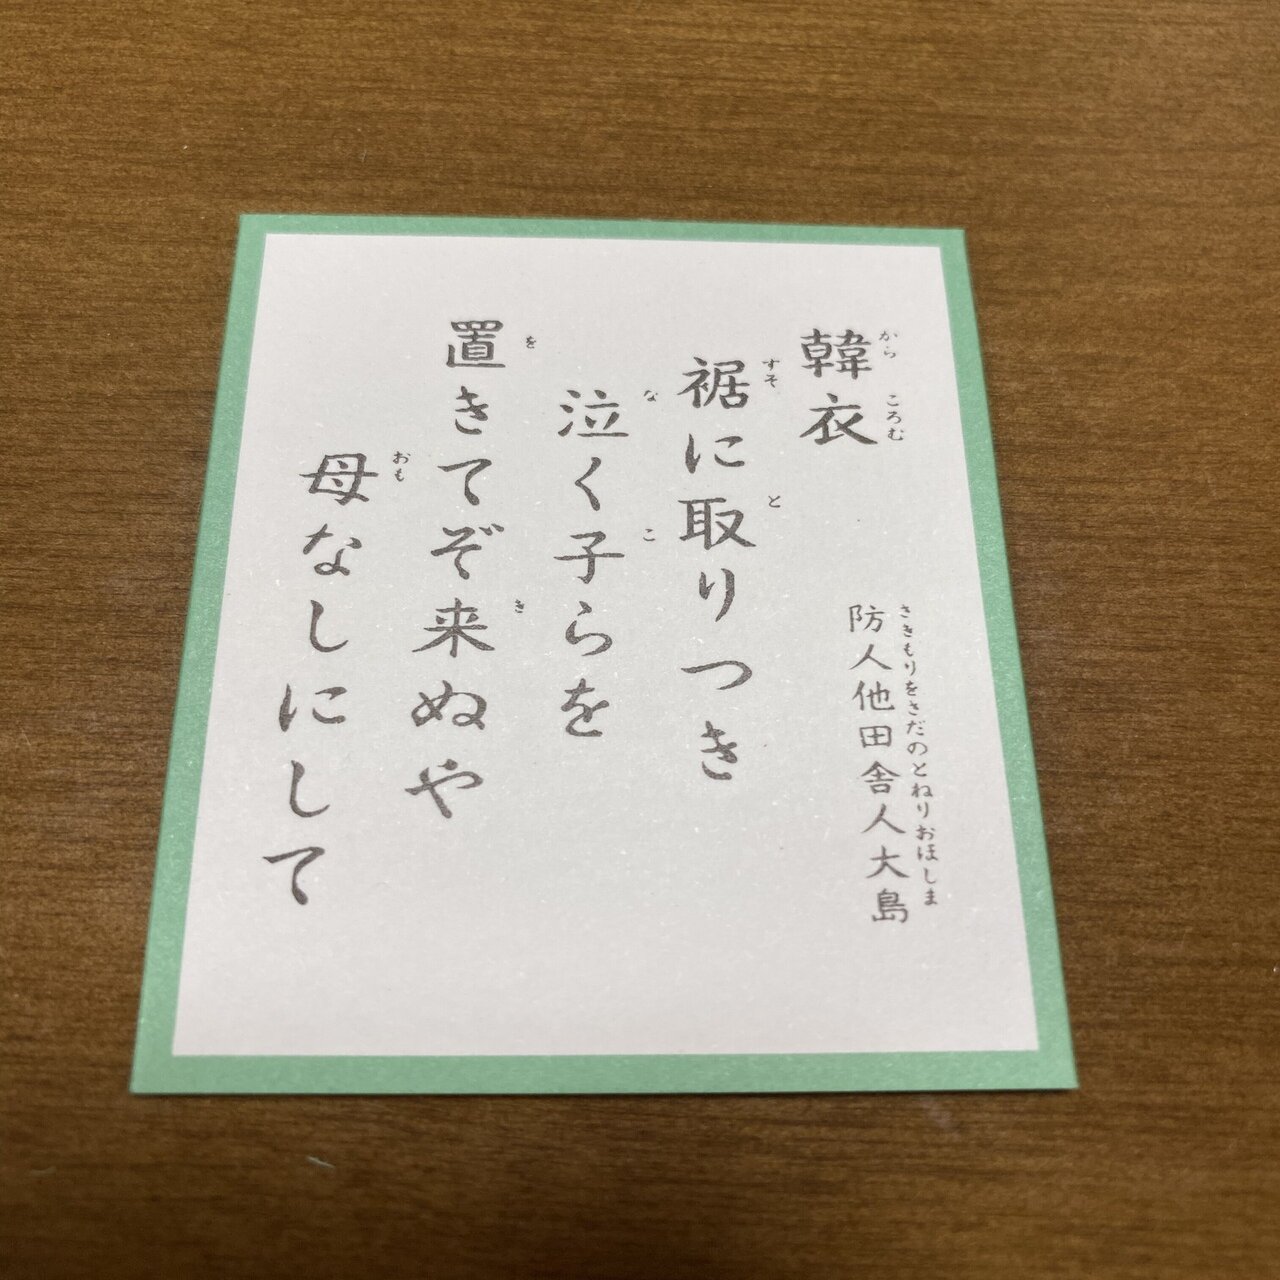 韓衣
からころむ
防人他田舎人大島
さきもりをさだのとねりおほしま
裾に取りつき
すそ と
泣く子らを
な こ
置きてぞ来ぬや
を き
母なしにして
おも